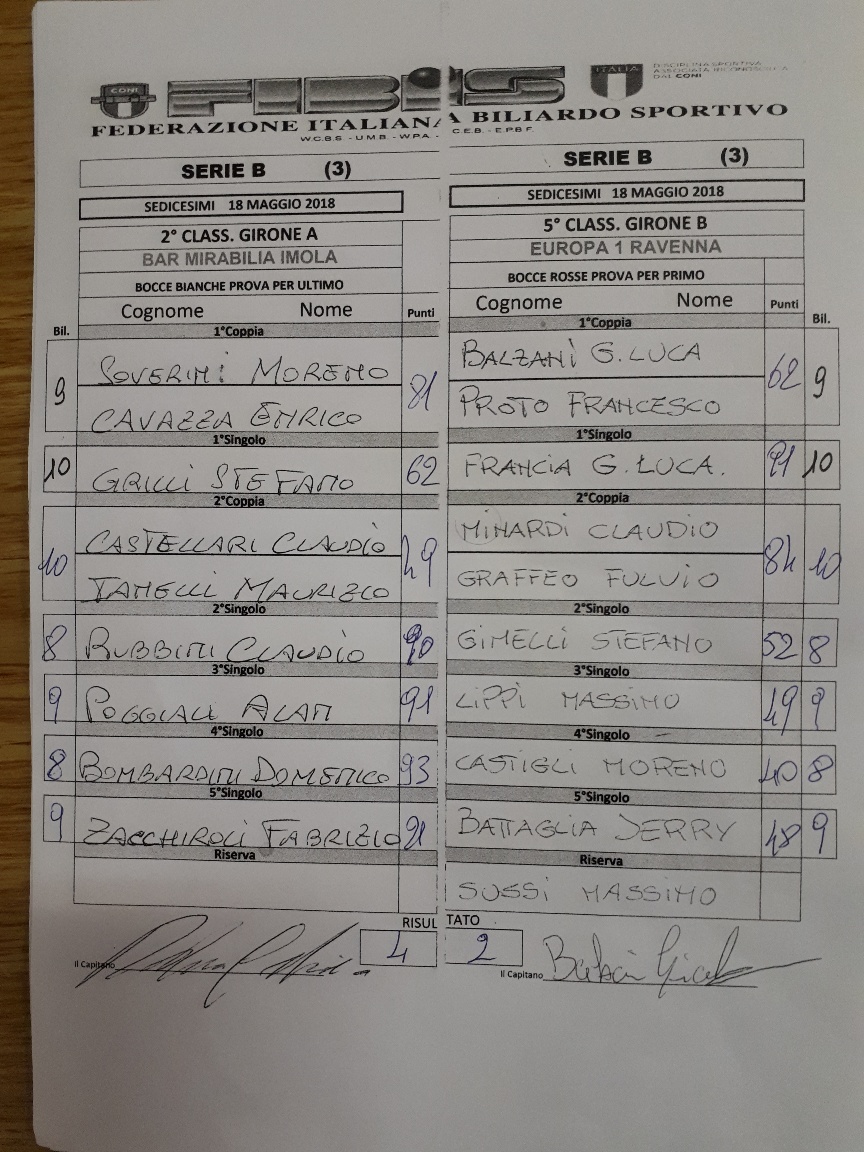 CONI
FIBiS
ITALIA
DISCIPLINA SPORTIVA
ASSOCIATA RICONOSCIUTA
DAL CONI
FEDERAZIONE ITALIANA BILIARDO SPORTIVO
W.C.B.S. - U.M.B. - W.P.A. - C.E.B. - E.P.B.F.
SERIE B (3)
SEDICESIMI 18 MAGGIO 2018
2° CLASS. GIRONE A
BAR MIRABILIA IMOLA
BOCCE BIANCHE PROVA PER ULTIMO
Cognome Nome Punti
Bil. 1°Coppia
9 SOVERINI MORENO 81
CAVAZZA ENRICO
1°Singolo
10 GRILLI STEFANO 62
2°Coppia
10 CASTELLARI CLAUDIO 49
TANELLI MAURIZIO
2°Singolo
8 RUBBINI CLAUDIO 90
3°Singolo
9 POGGIALI ALAN 91
4°Singolo
8 BOMBARDINI DOMENICO 93
5°Singolo
9 ZACCHIROLI FABRIZIO 91
Riserva
SERIE B (3)
SEDICESIMI 18 MAGGIO 2018
5° CLASS. GIRONE B
EUROPA 1 RAVENNA
BOCCE ROSSE PROVA PER PRIMO
Cognome Nome Punti
1°Coppia Bil.
BALZANI G.LUCA 62 9
PROTO FRANCESCO
1°Singolo
FRANCIA G.LUCA. 91 10
2°Coppia
MINARDI CLAUDIO 84 10
GRAFFEO FULVIO
2°Singolo
GIMELLI STEFANO 52 8
3°Singolo
LIPPI MASSIMO 49 9
4°Singolo
CASTIGLI MORENO 40 8
5°Singolo
BATTAGLIA JERRY 48 9
Riserva
SUSSI MASSIMO
RISULTATO
4 2
Il Capitano
Il Capitano